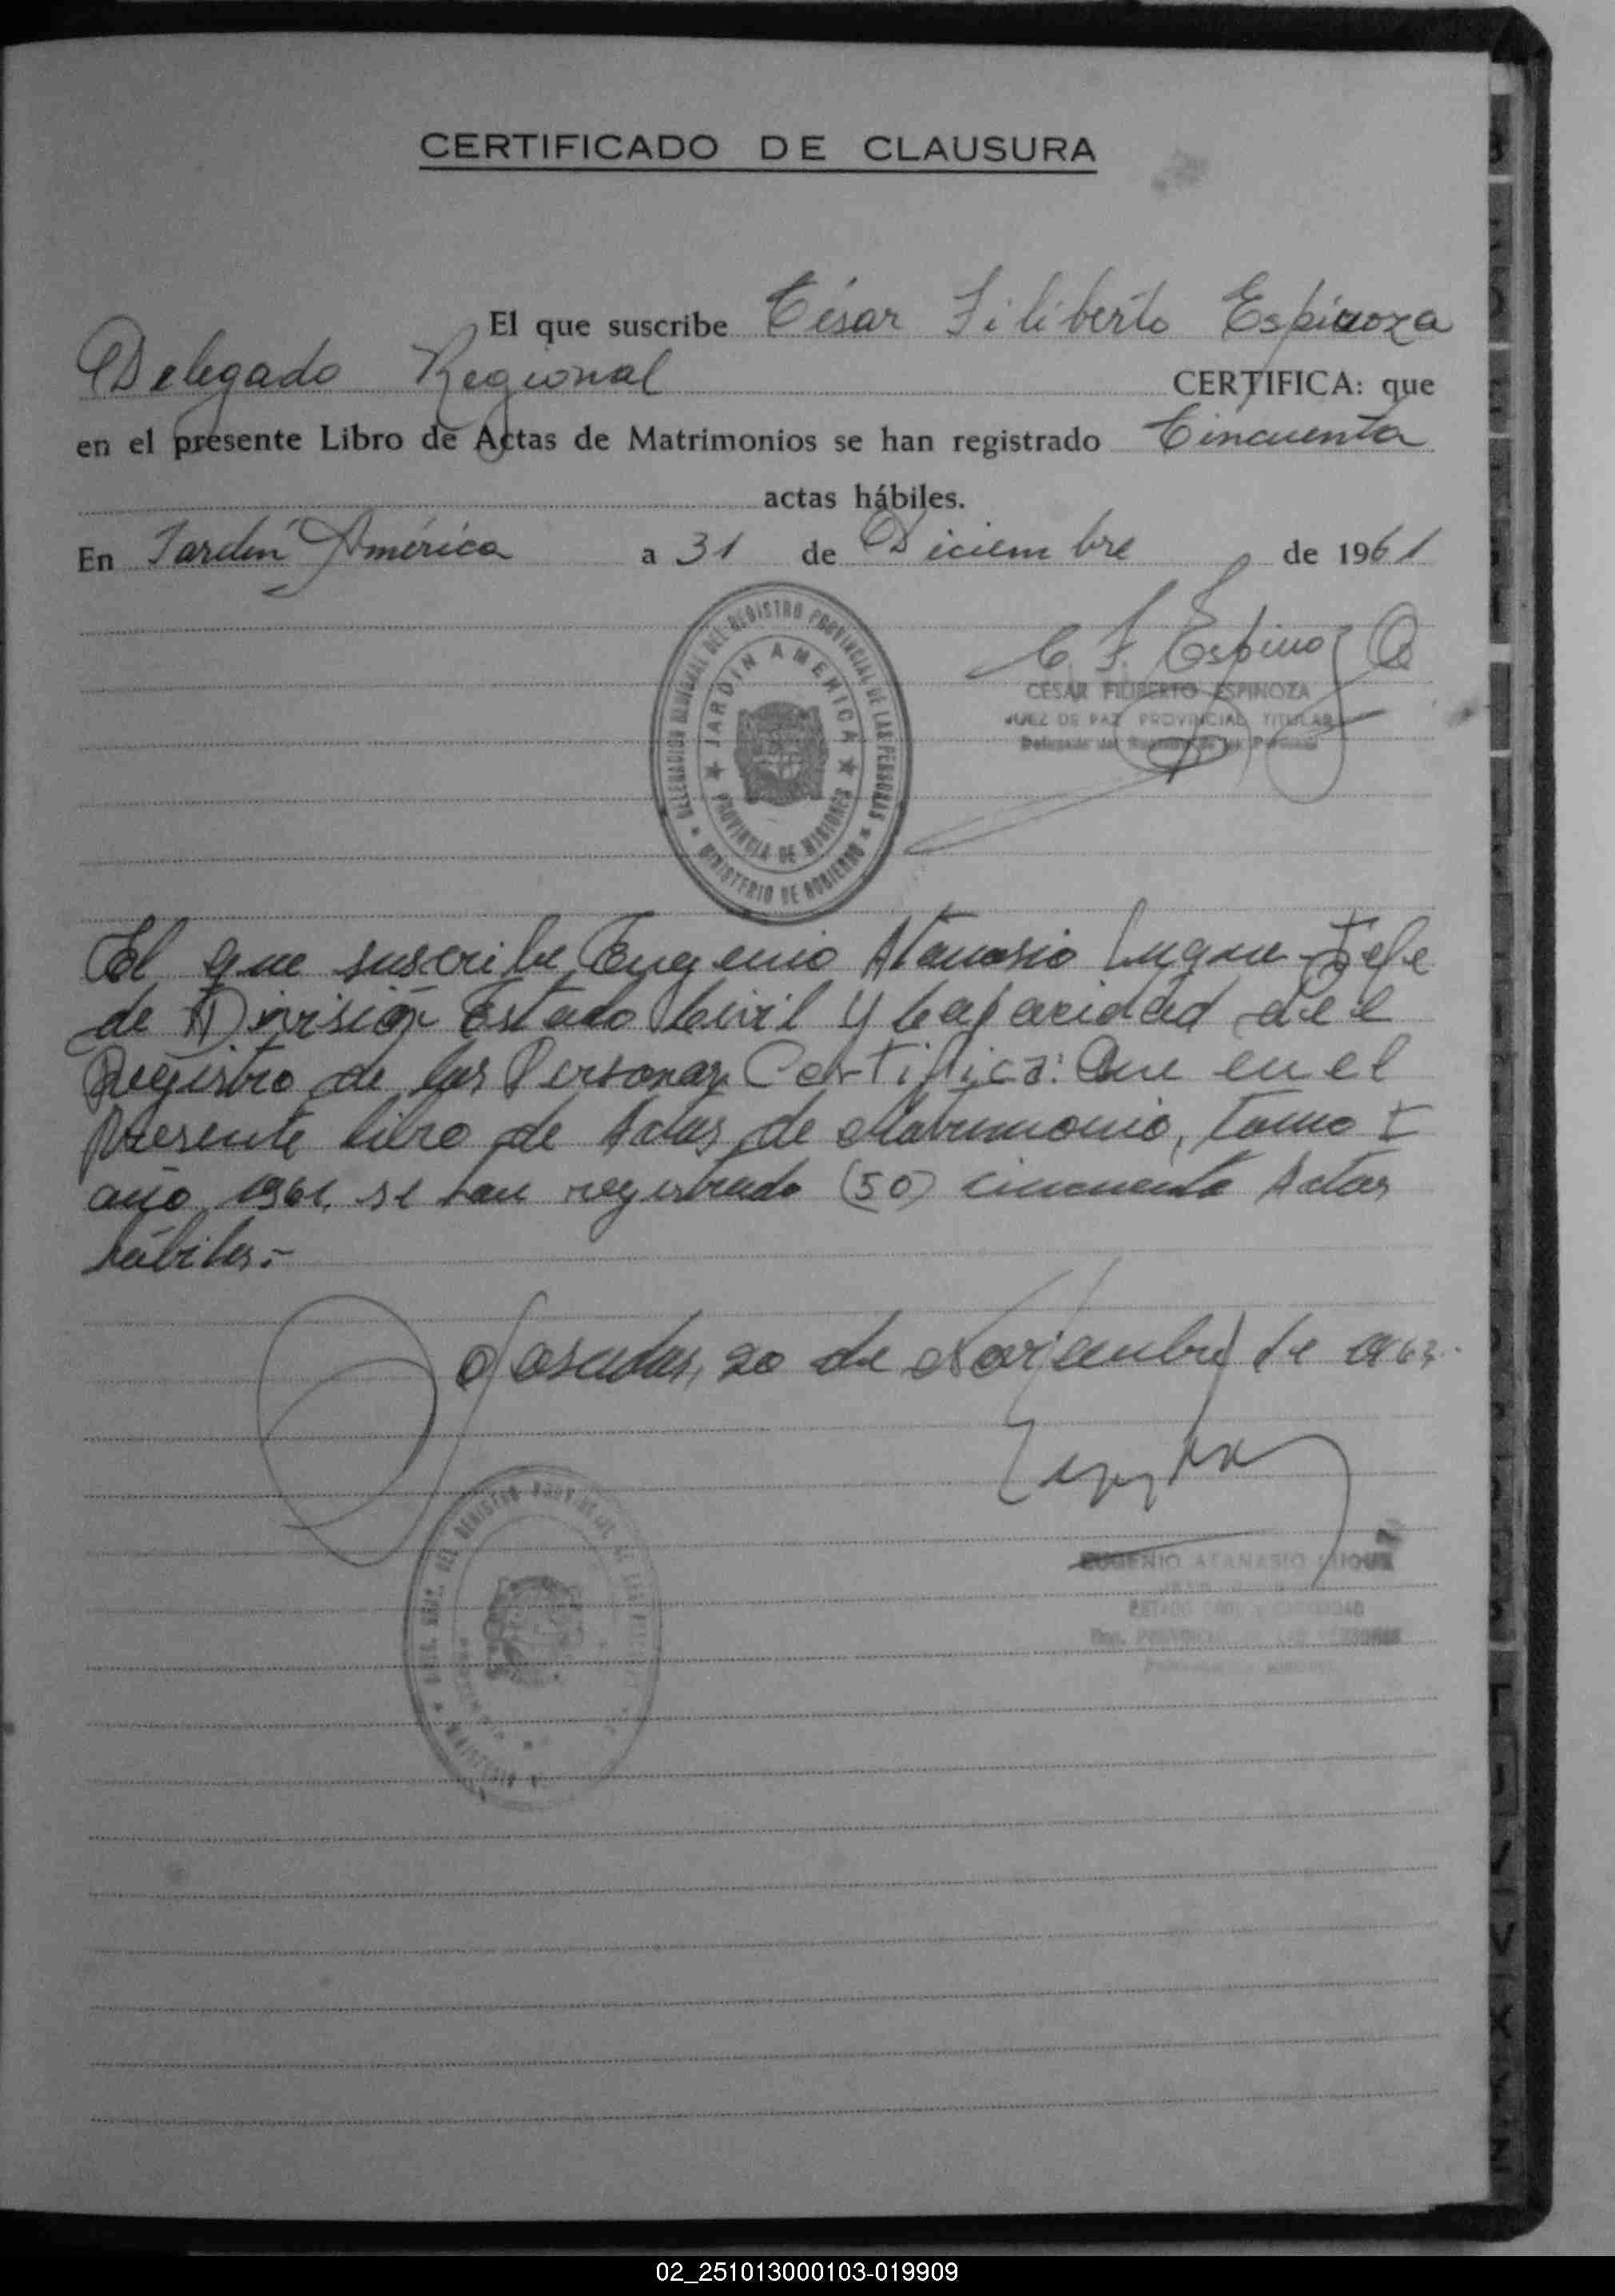 CERTIFICADO DE CLAUSURA
El que suscribe César Filiberto Espinoza
Delegado Regional CERTIFICA: que
en el presente Libro de Actas de Matrimonios se han registrado Cincuenta
actas hábiles.
En Jardín América a 31 de Diciembre de 1961
DELEGACION REGIONAL DEL REGISTRO PROVINCIAL DE LAS PERSONAS
JARDIN AMERICA
PROVINCIA DE MISIONES
MINISTERIO DE GOBIERNO
C. F. Espinoza
CESAR FILIBERTO ESPINOZA
JUEZ DE PAZ PROVINCIAL TITULAR
Delegado del Registro de las Personas
El que suscribe, Eugenio Atanasio Luque Jefe
de División Estado Civil y Capacidad del
Registro de las Personas Certifica: Que en el
presente libro de Actas de Matrimonio, Tomo I
año 1961, se han registrado (50) cincuenta Actas
hábiles.-
Posadas, 20 de Noviembre de 1963.
DEL REGISTRO PROVINCIAL DE LAS
EUGENIO ATANASIO LUQUE
ESTADO CIVIL Y CAPACIDAD
PROVINCIAL DE LAS PERSONAS
02_251013000103-019909